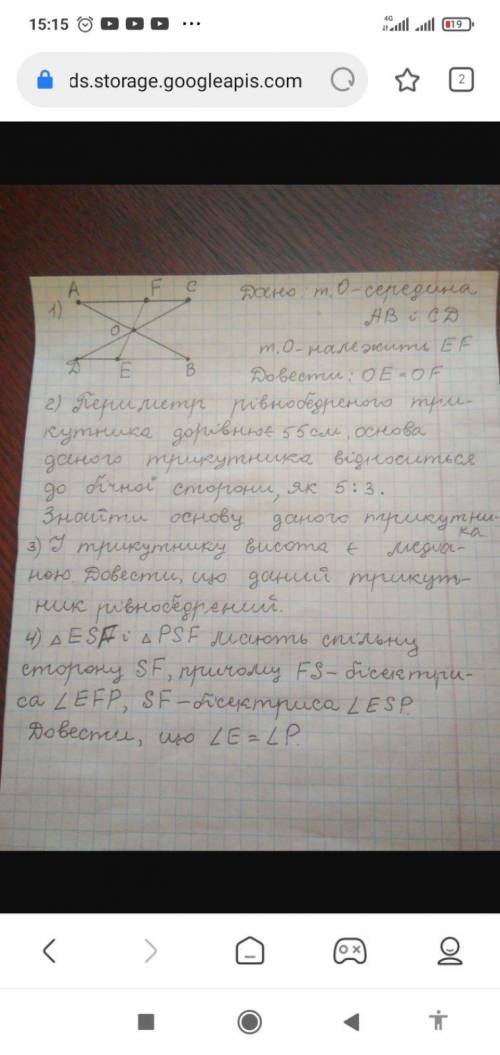 15:15
4G
19
ds.storage.googleapis.com
2
A F C
1)
O
D E B
Дано: т. О-середина
АВ і СD
т. О-належить EF
Довести: OE=OF
2) Периметр рівнобедреного три-
кутника дорівнює 55см, основа
даного трикутника відноситься
до бічної сторони, як 5:3.
Знайти основу даного трикутни-
ка
3) У трикутнику висота є медіа-
ною. Довести, що даний трикут-
ник рівнобедрений.
4) △ESF і △PSF мають спільну
сторону SF, причому FS-бісектри-
са ∠EFP, SF-бісектриса ∠ESP.
Довести, що ∠E=∠P.